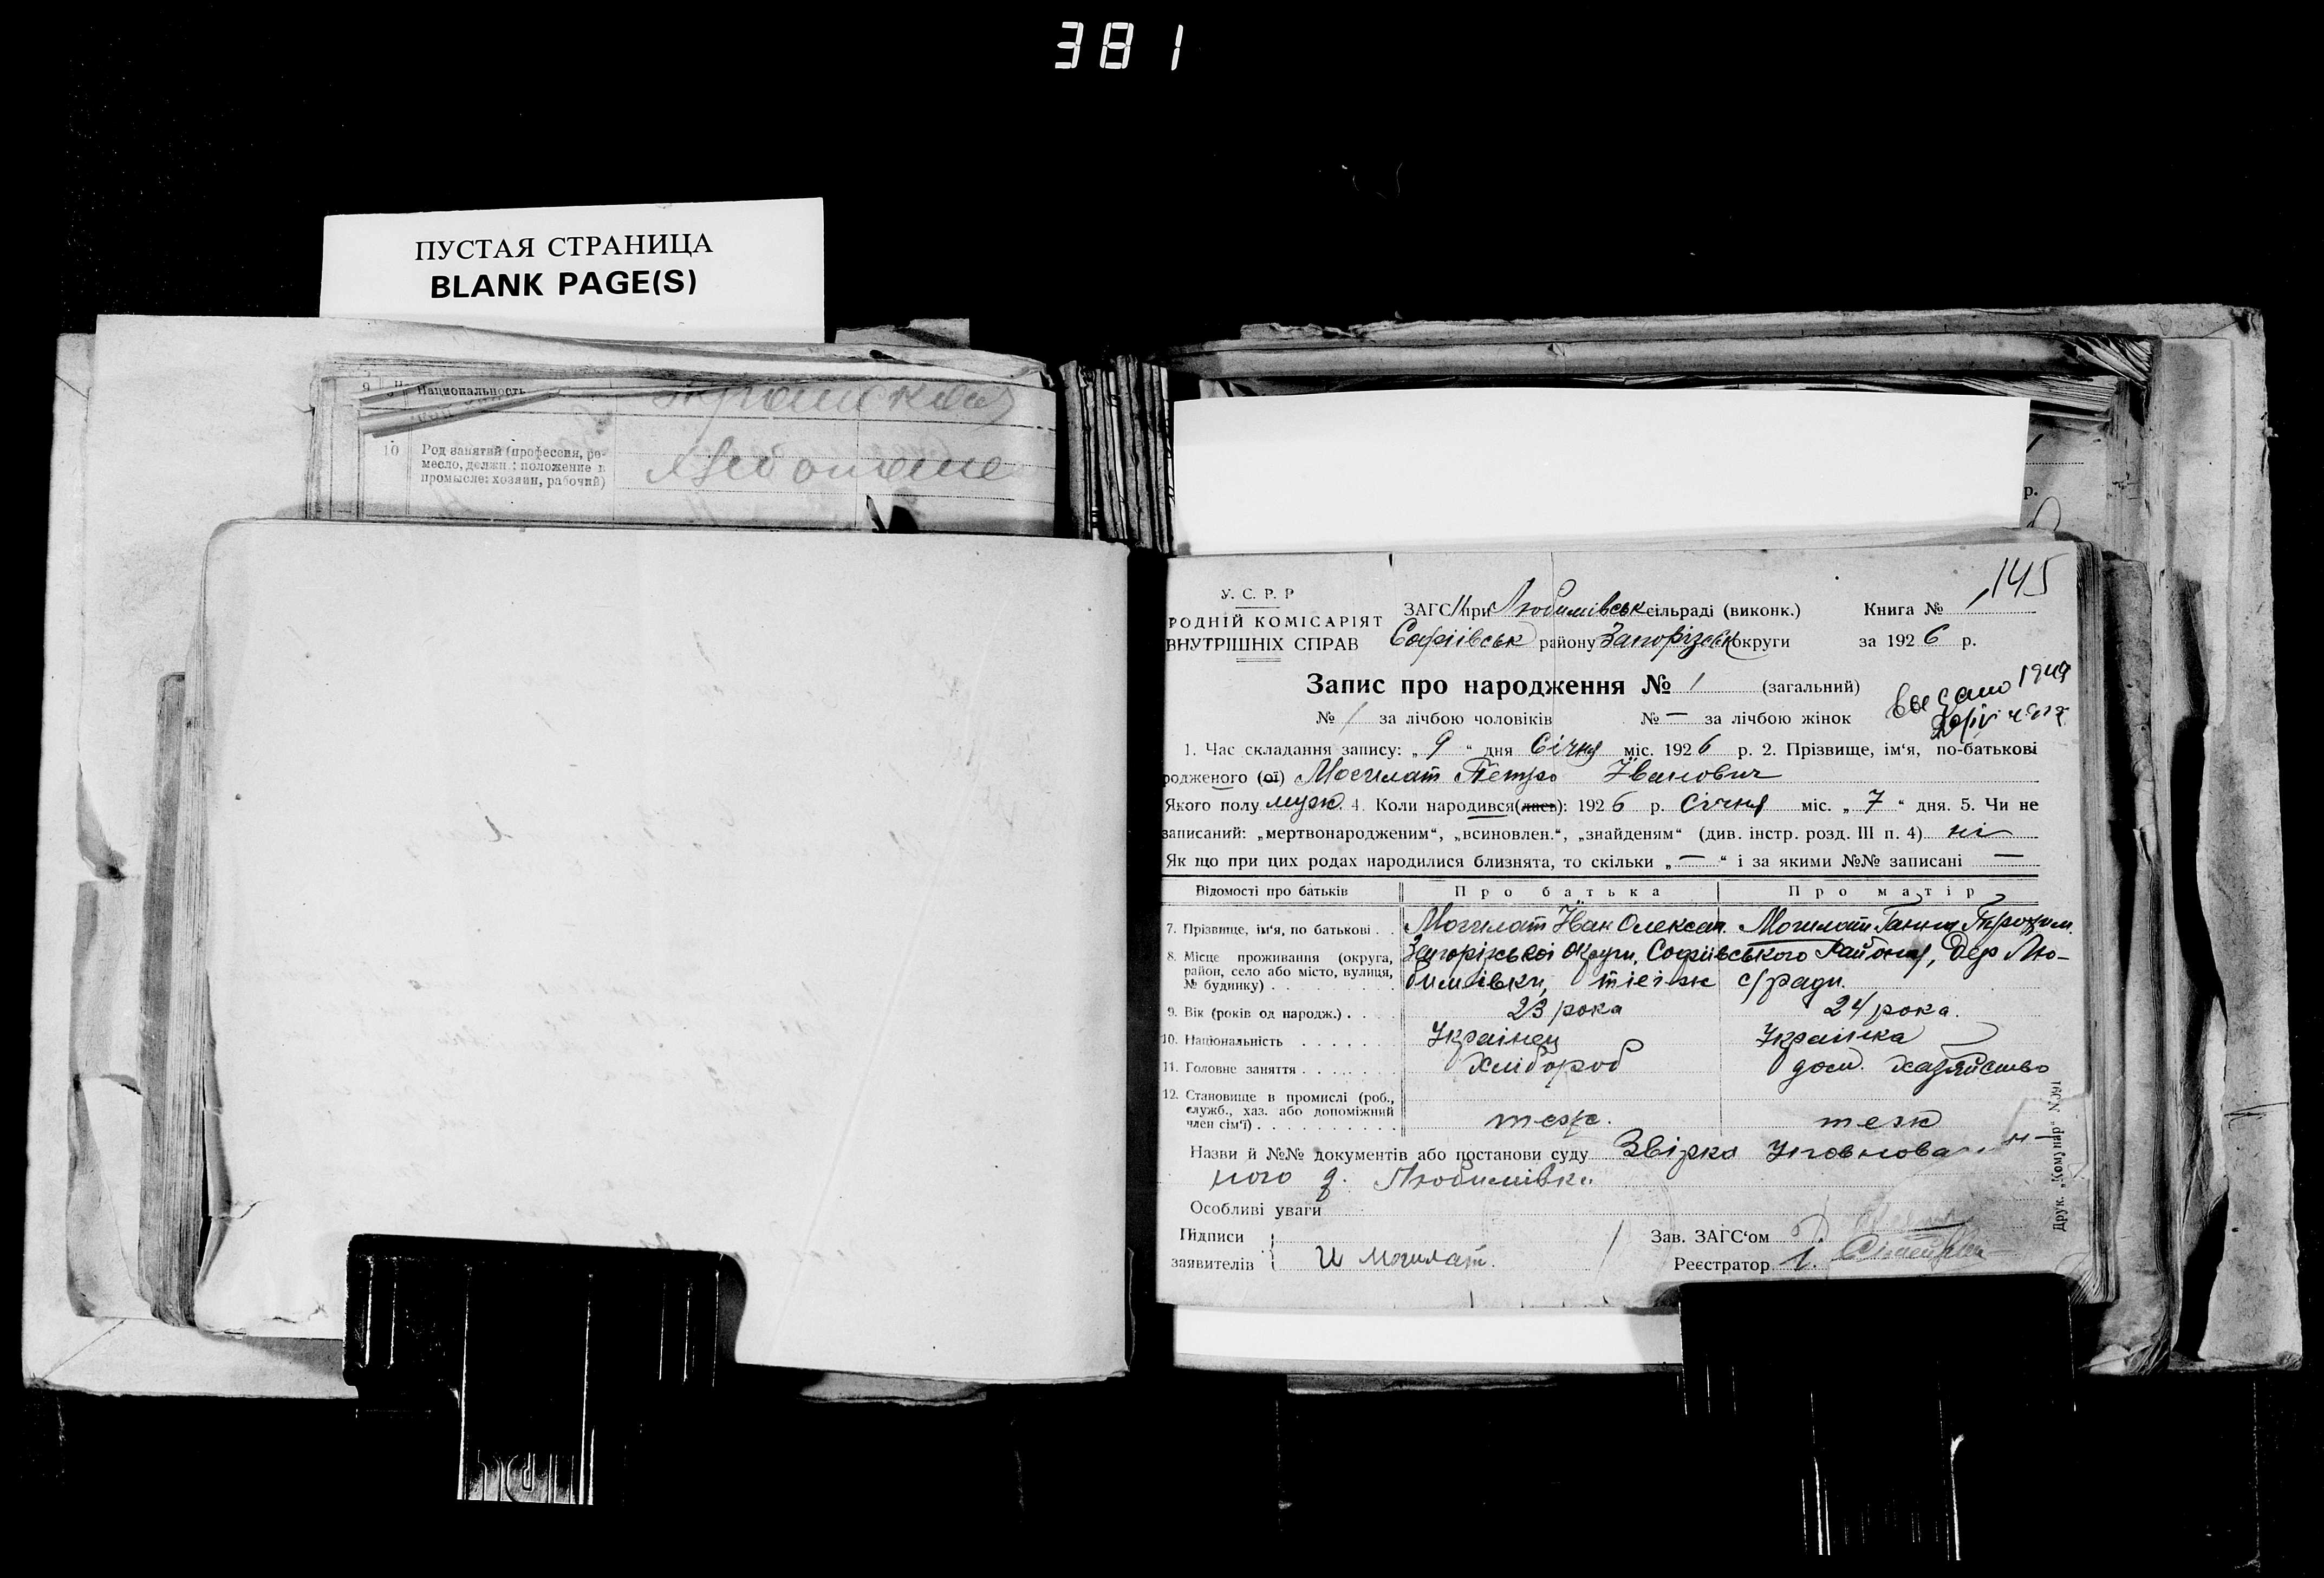 381
ПУСТАЯ СТРАНИЦА
BLANK PAGE(S)
9 Национальность
10 Род занятий (профессия, ре-
месло, должн.: положение в
промысле: хозяин, рабочий)
145
У. С. Р. Р
РОДНІЙ КОМІСАРІЯТ
ВНУТРІШНІХ СПРАВ
ЗАГС при Любимівськ сільраді (виконк.) Книга № 1
Софіївськ району Запорізськ округи за 1926 р.
Запис про народження № 1 (загальний)
1949
№ 1 за лічбою чоловіків № — за лічбою жінок
1. Час складання запису: „ 9 “ дня Січня міс. 1926 р. 2. Прізвище, ім‘я, по-батькові
родженого (ої) Могилат Петро Іванович
Якого полу муж. 4. Коли народився(лась): 1926 р. Січня міс. „ 7 “ дня. 5. Чи не
записаний: „мертвонародженим“, „всиновлен.“, „знайденям“ (див. інстр. розд. III п. 4) ні
Як що при цих родах народилися близнята, то скільки „ — “ і за якими №№ записані —
Відомості про батьків Про батька Про матір
7. Прізвище, ім‘я, по батькові . . Могилат Іван Олексан. Могилат Ганна
8. Місце проживання (округа, район, село або місто, вулиця, № будинку) Запорізької Округи, Софіївського Району, Дер Лю-
бимівки, тієїж с/ради.
9. Вік (років од народж.) . . . 23 рока 24 рока.
10. Національність . . . . . . Українец Українка
11. Головне заняття . . . . . . Хлібороб дом. хазяйство
12. Становище в промислі (роб.,
служб., хаз. або допоміжний
член сім‘ї) . . . . . . . . . теж. теж
Назви й №№ документів або постанови суду Звірка Уповнова
ного д. Любимівки
Особливі уваги
Підписи
заявителів И Могилат.
Зав. ЗАГС‘ом
Реєстратор
Друк. „Комунар“ №391